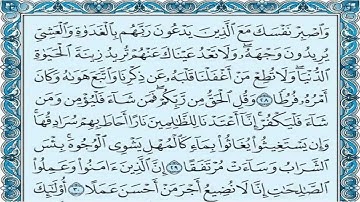 وَٱصۡبِرۡ نَفۡسَكَ مَعَ ٱلَّذِينَ يَدۡعُونَ رَبَّهُم بِٱلۡغَدَوٰةِ وَٱلۡعَشِيِّ
يُرِيدُونَ وَجۡهَهُۥۖ وَلَا تَعۡدُ عَيۡنَاكَ عَنۡهُمۡ تُرِيدُ زِينَةَ ٱلۡحَيَوٰةِ
ٱلدُّنۡيَاۖ وَلَا تُطِعۡ مَنۡ أَغۡفَلۡنَا قَلۡبَهُۥ عَن ذِكۡرِنَا وَٱتَّبَعَ هَوَىٰهُ وَكَانَ
أَمۡرُهُۥ فُرُطٗا ٢٨ وَقُلِ ٱلۡحَقُّ مِن رَّبِّكُمۡۖ فَمَن شَآءَ فَلۡيُؤۡمِن وَمَن
شَآءَ فَلۡيَكۡفُرۡۚ إِنَّآ أَعۡتَدۡنَا لِلظَّٰلِمِينَ نَارًا أَحَاطَ بِهِمۡ سُرَادِقُهَاۚ
وَإِن يَسۡتَغِيثُواْ يُغَاثُواْ بِمَآءٖ كَٱلۡمُهۡلِ يَشۡوِي ٱلۡوُجُوهَۚ بِئۡسَ
ٱلشَّرَابُ وَسَآءَتۡ مُرۡتَفَقًا ٢٩ إِنَّ ٱلَّذِينَ ءَامَنُواْ وَعَمِلُواْ
ٱلصَّٰلِحَٰتِ إِنَّا لَا نُضِيعُ أَجۡرَ مَنۡ أَحۡسَنَ عَمَلًا ٣٠ أُوْلَٰٓئِكَ